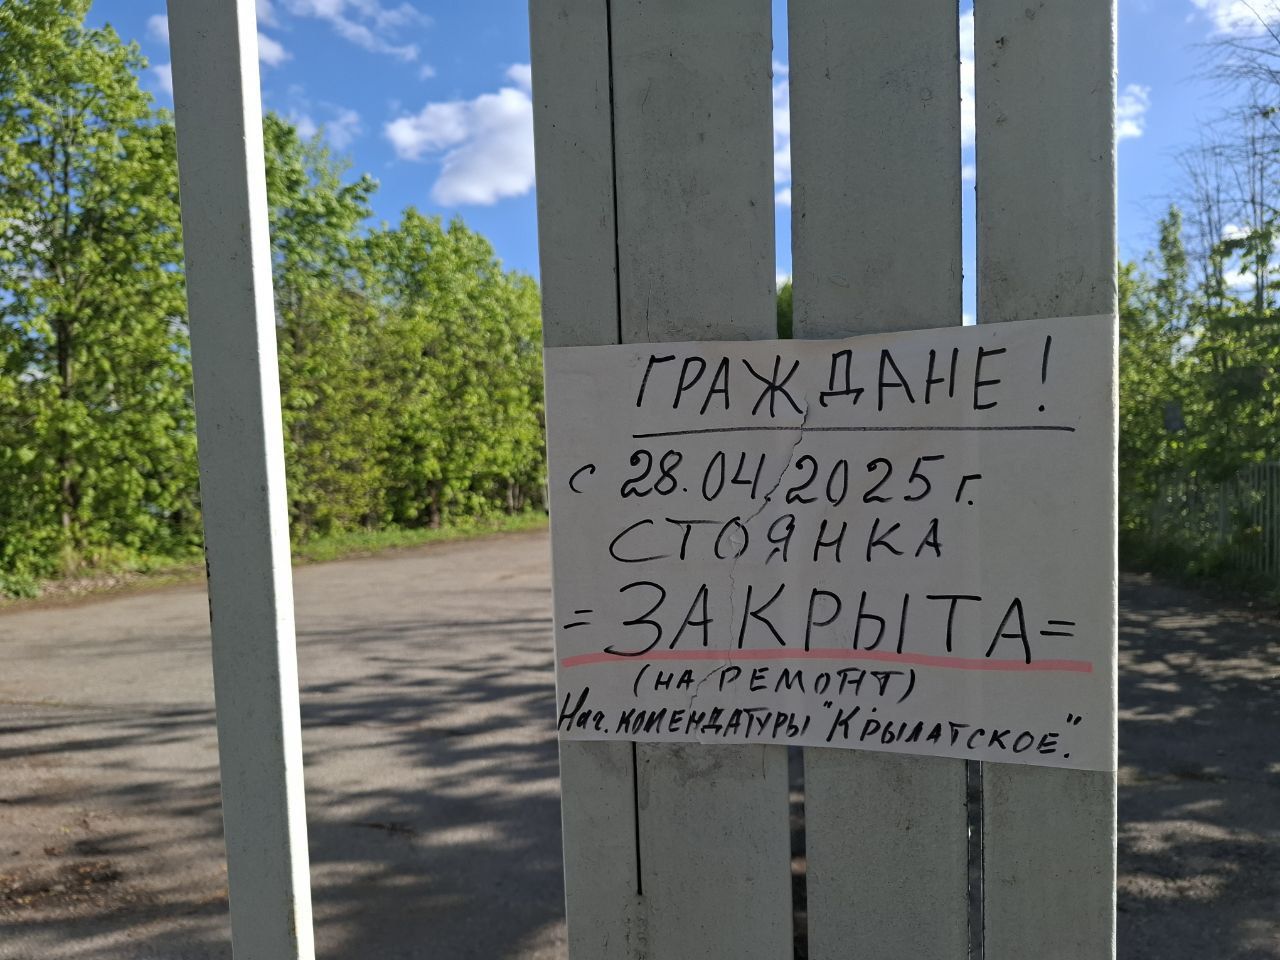 ГРАЖДАНЕ!
с 28.04.2025 г.
СТОЯНКА
=ЗАКРЫТА=
(НА РЕМОНТ)
Нач. КОМЕНДАТУРЫ "КРЫЛАТСКОЕ."